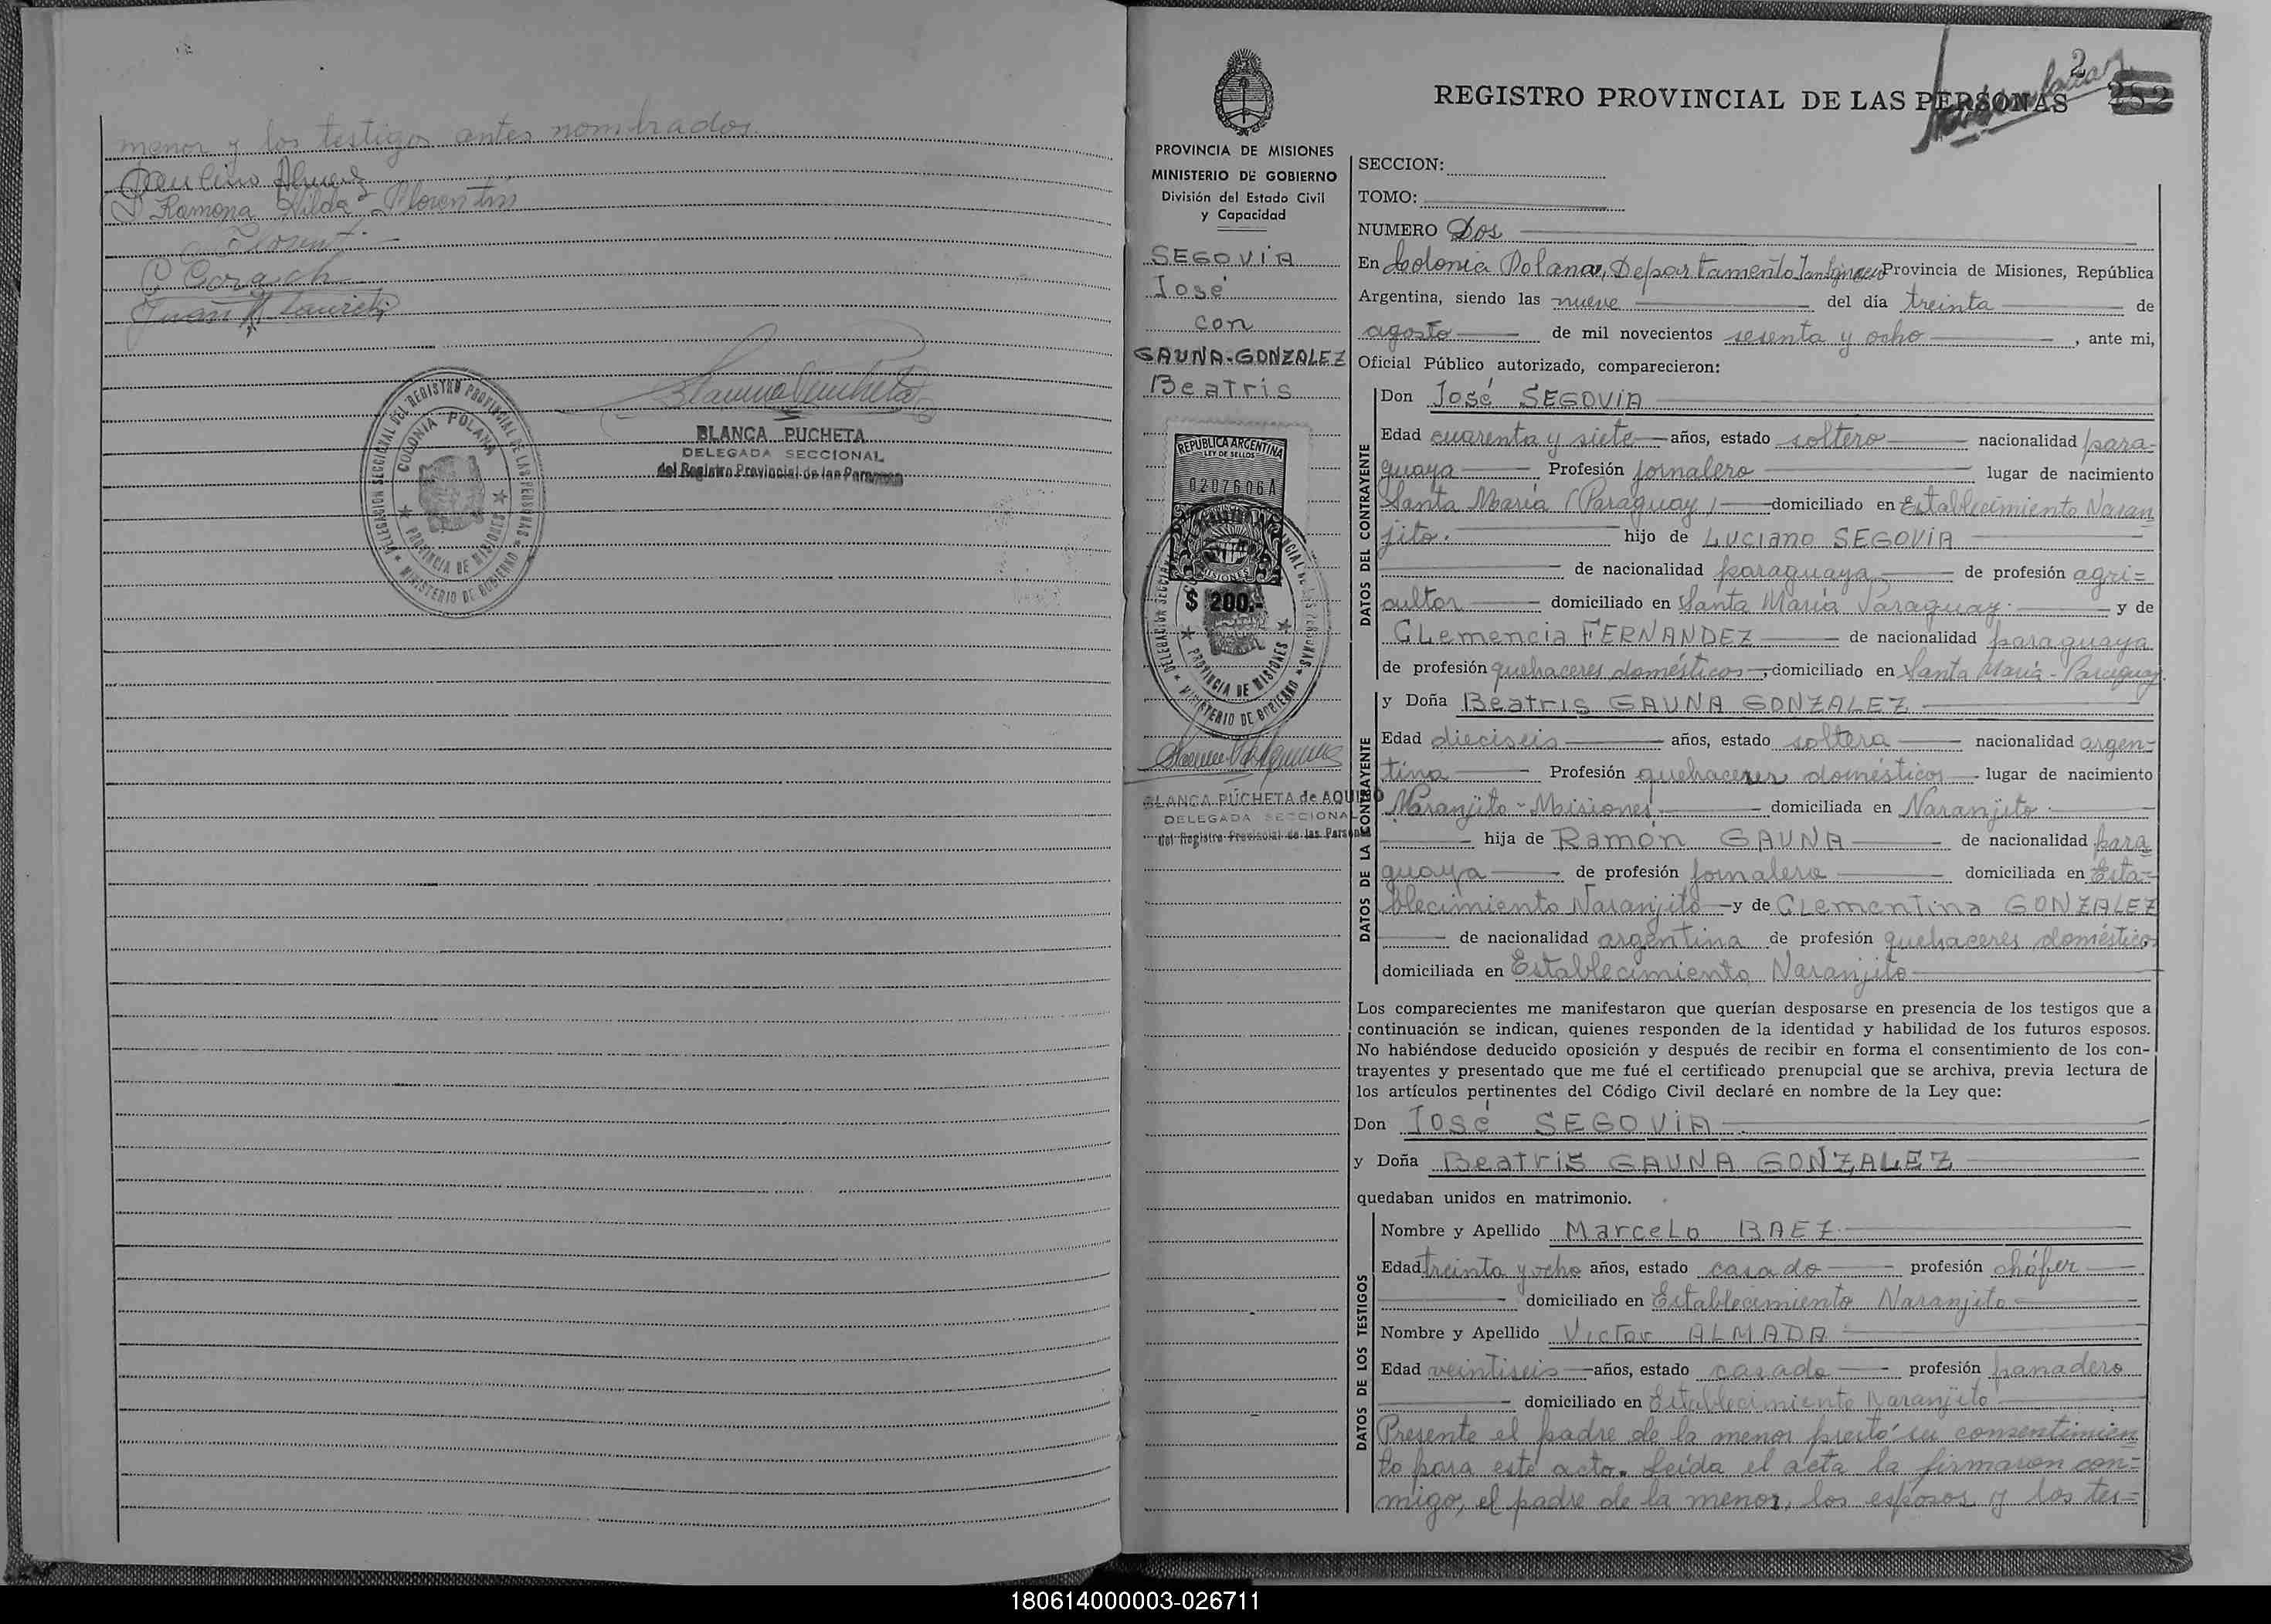 menor y los testigos antes nombrados.
Ramona Hilda Florentin
C Corach
Juan
BLANCA PUCHETA
DELEGADA SECCIONAL
del Registro Provincial de las Personas
DELEGACION SECCIONAL DEL REGISTRO PROVINCIAL DE LAS PERSONAS
COLONIA POLANA
PROVINCIA DE MISIONES
MINISTERIO DE GOBIERNO
2
252
REGISTRO PROVINCIAL DE LAS PERSONAS
PROVINCIA DE MISIONES
MINISTERIO DE GOBIERNO
División del Estado Civil
y Capacidad
SEGOVIA
José
con
GAUNA-GONZALEZ
Beatris
REPUBLICA ARGENTINA
LEY DE SELLOS
0207606A
MISIONES
$ 200.-
PROVINCIA DE MISIONES
MINISTERIO DE GOBIERNO
BLANCA PUCHETA de AQUINO
DELEGADA SECCIONAL
del Registro Provincial de las Personas
SECCION:
TOMO:
NUMERO Dos
En Colonia Polana, Departamento Provincia de Misiones, República
Argentina, siendo las nueve del día treinta de
agosto de mil novecientos sesenta y ocho, ante mi,
Oficial Público autorizado, comparecieron:
DATOS DEL CONTRAYENTE
Don José SEGOVIA
Edad cuarenta y siete años, estado soltero nacionalidad para-
guaya Profesión jornalero lugar de nacimiento
Santa María (Paraguay) domiciliado en Establecimiento Naran
jito. hijo de Luciano SEGOVIA
de nacionalidad paraguaya de profesión agri=
cultor domiciliado en Santa María Paraguay. y de
CLemencia FERNANDEZ de nacionalidad paraguaya
de profesión quehaceres domésticos, domiciliado en Santa María - Paraguay.
DATOS DE LA CONTRAYENTE
y Doña Beatris GAUNA GONZALEZ
Edad dieciseis años, estado soltera nacionalidad argen-
tina Profesión quehaceres domésticos lugar de nacimiento
Naranjito - Misiones, domiciliada en Naranjito.
hija de Ramón GAUNA de nacionalidad para
guaya de profesión jornalero domiciliada en Esta-
blecimiento Naranjito y de CLementina GONZALEZ
de nacionalidad argentina de profesión quehaceres domésticos
domiciliada en Establecimiento Naranjito
Los comparecientes me manifestaron que querían desposarse en presencia de los testigos que a
continuación se indican, quienes responden de la identidad y habilidad de los futuros esposos.
No habiéndose deducido oposición y después de recibir en forma el consentimiento de los con-
trayentes y presentado que me fué el certificado prenupcial que se archiva, previa lectura de
los artículos pertinentes del Código Civil declaré en nombre de la Ley que:
Don José SEGOVIA
y Doña Beatris GAUNA GONZALEZ
quedaban unidos en matrimonio.
DATOS DE LOS TESTIGOS
Nombre y Apellido MarceLo BAEZ.
Edad treinta y ocho años, estado casado profesión chófer
domiciliado en Establecimiento Naranjito
Nombre y Apellido Victor ALMADA
Edad veintiseis años, estado casado profesión panadero
domiciliado en Establecimiento Naranjito
Presente el padre de la menor prestó su consentimien
to para este acto. Leída el acta la firmaron con=
migo, el padre de la menor, los esposos y los tes=
180614000003-026711